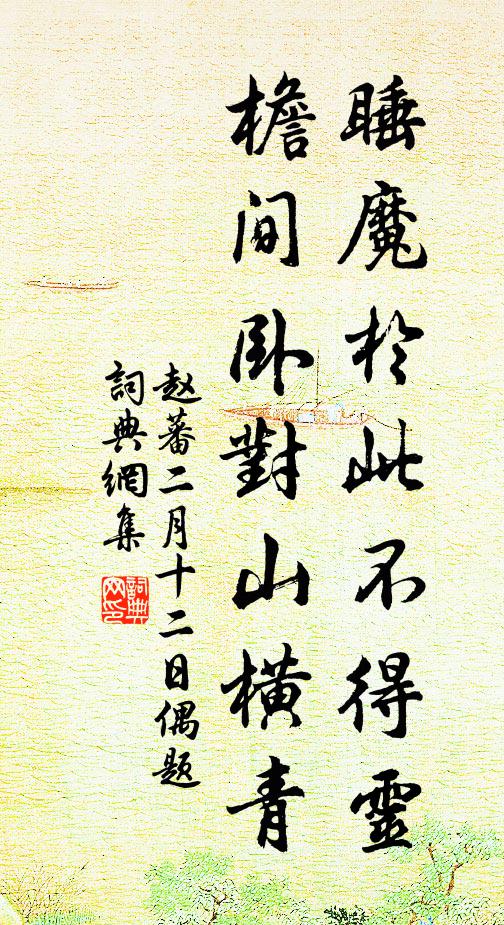 睡魔於此不得靈
檐間卧對山橫青
赵蕃二月十二日偶题
詞典網集
詞典网印